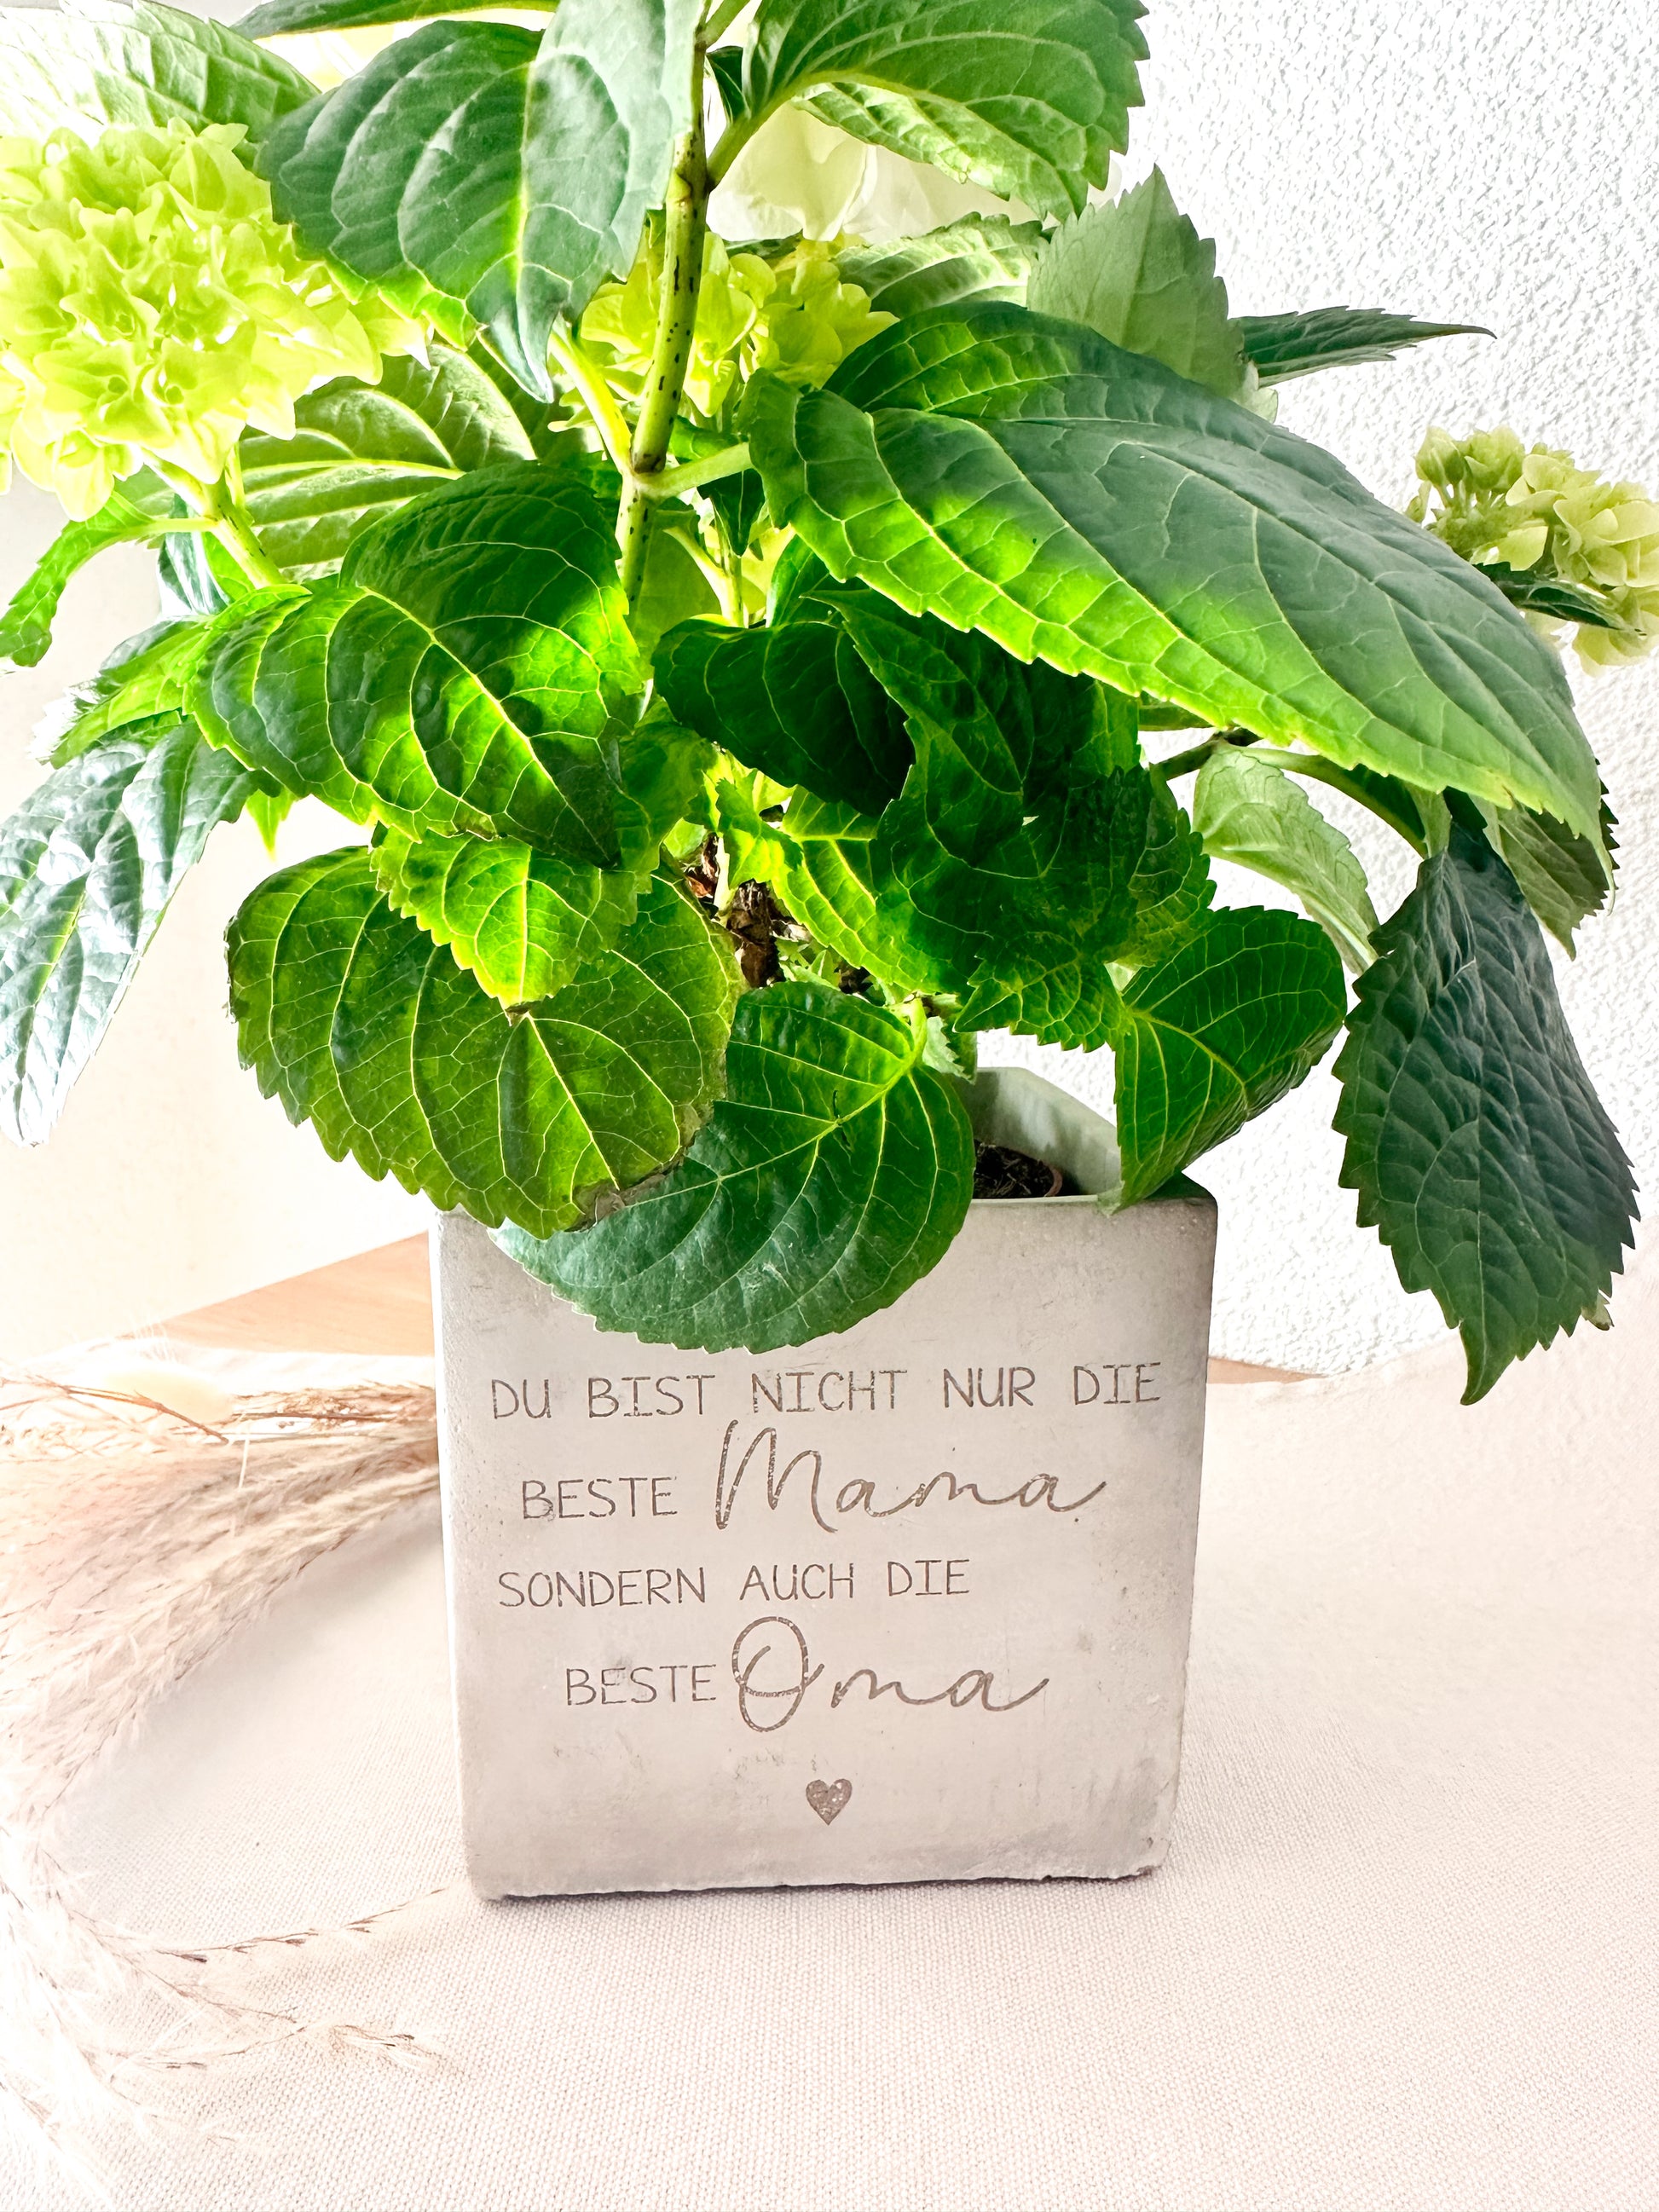 DU BIST NICHT NUR DIE
BESTE Mama
SONDERN AUCH DIE
BESTE Oma